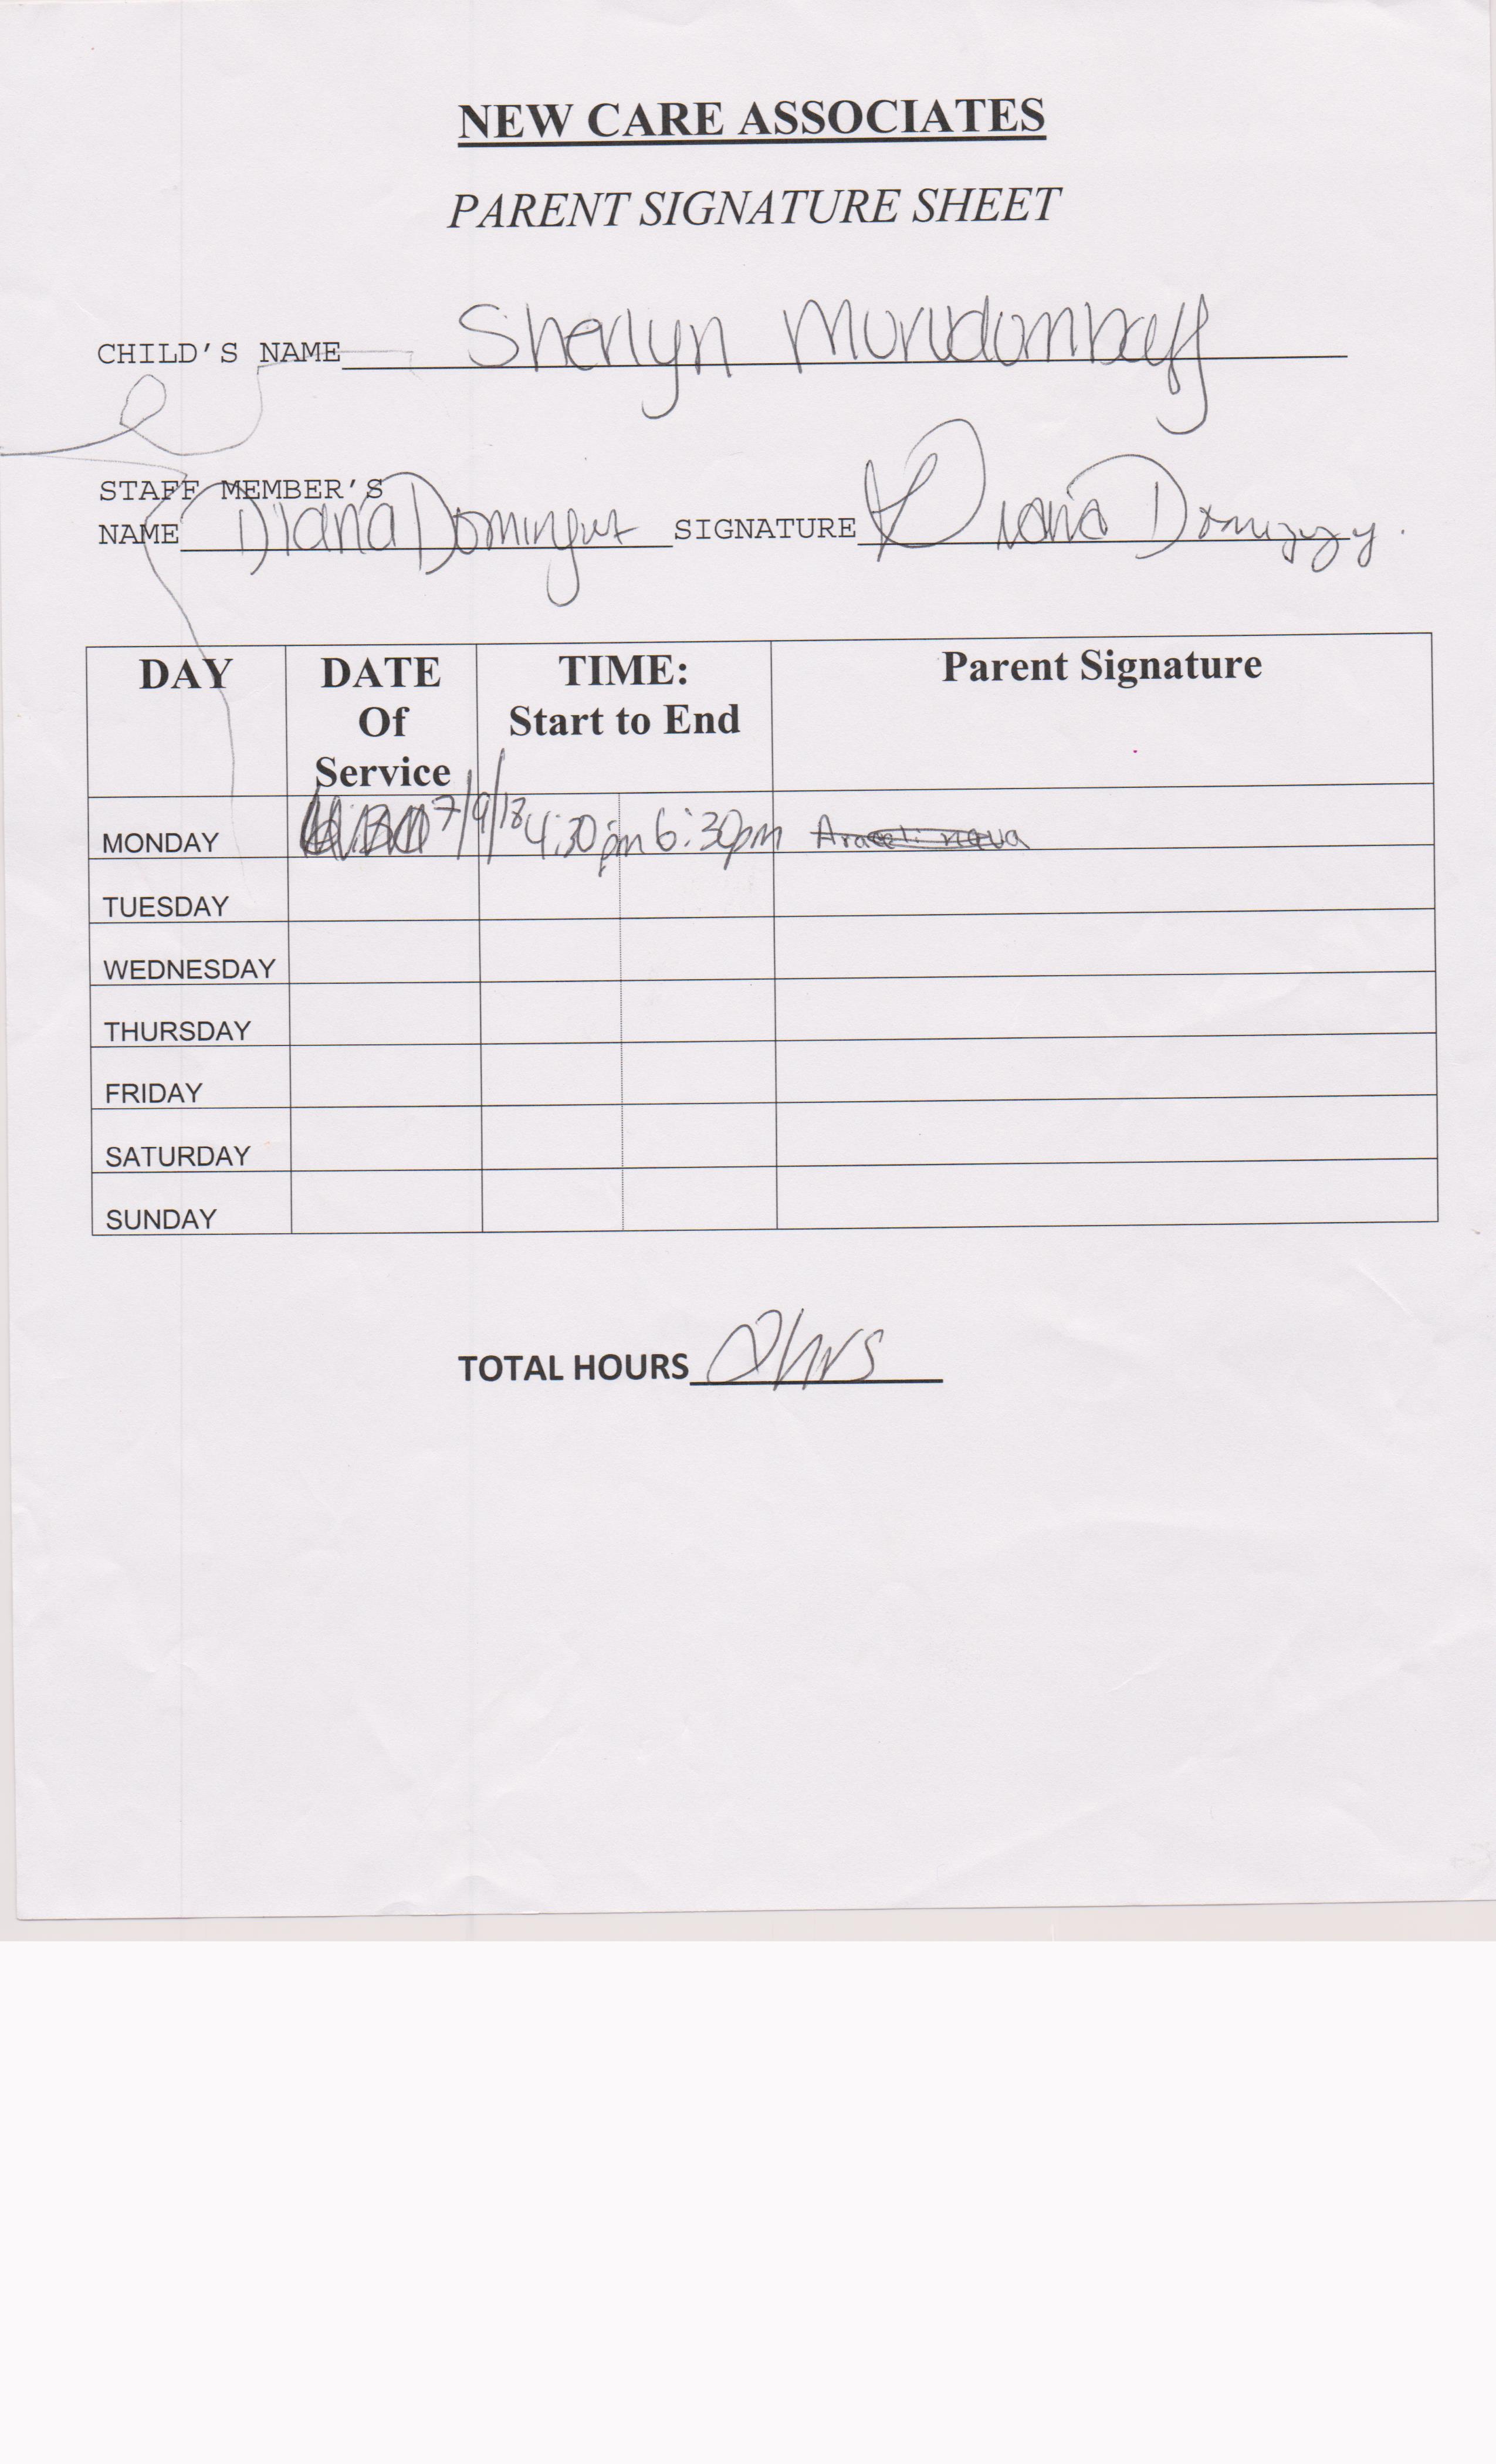 NEW CARE ASSOCIATES
PARENT SIGNATURE SHEET
CHILD'S NAME Sherlyn
STAFF MEMBER'S
NAME Diana Dominguez SIGNATURE Diana
DAY DATE Of Service TIME: Start to End Parent Signature
MONDAY 7/9/18 4:30pm 6:30pm Araceli nava
TUESDAY
WEDNESDAY
THURSDAY
FRIDAY
SATURDAY
SUNDAY
TOTAL HOURS 2hrs